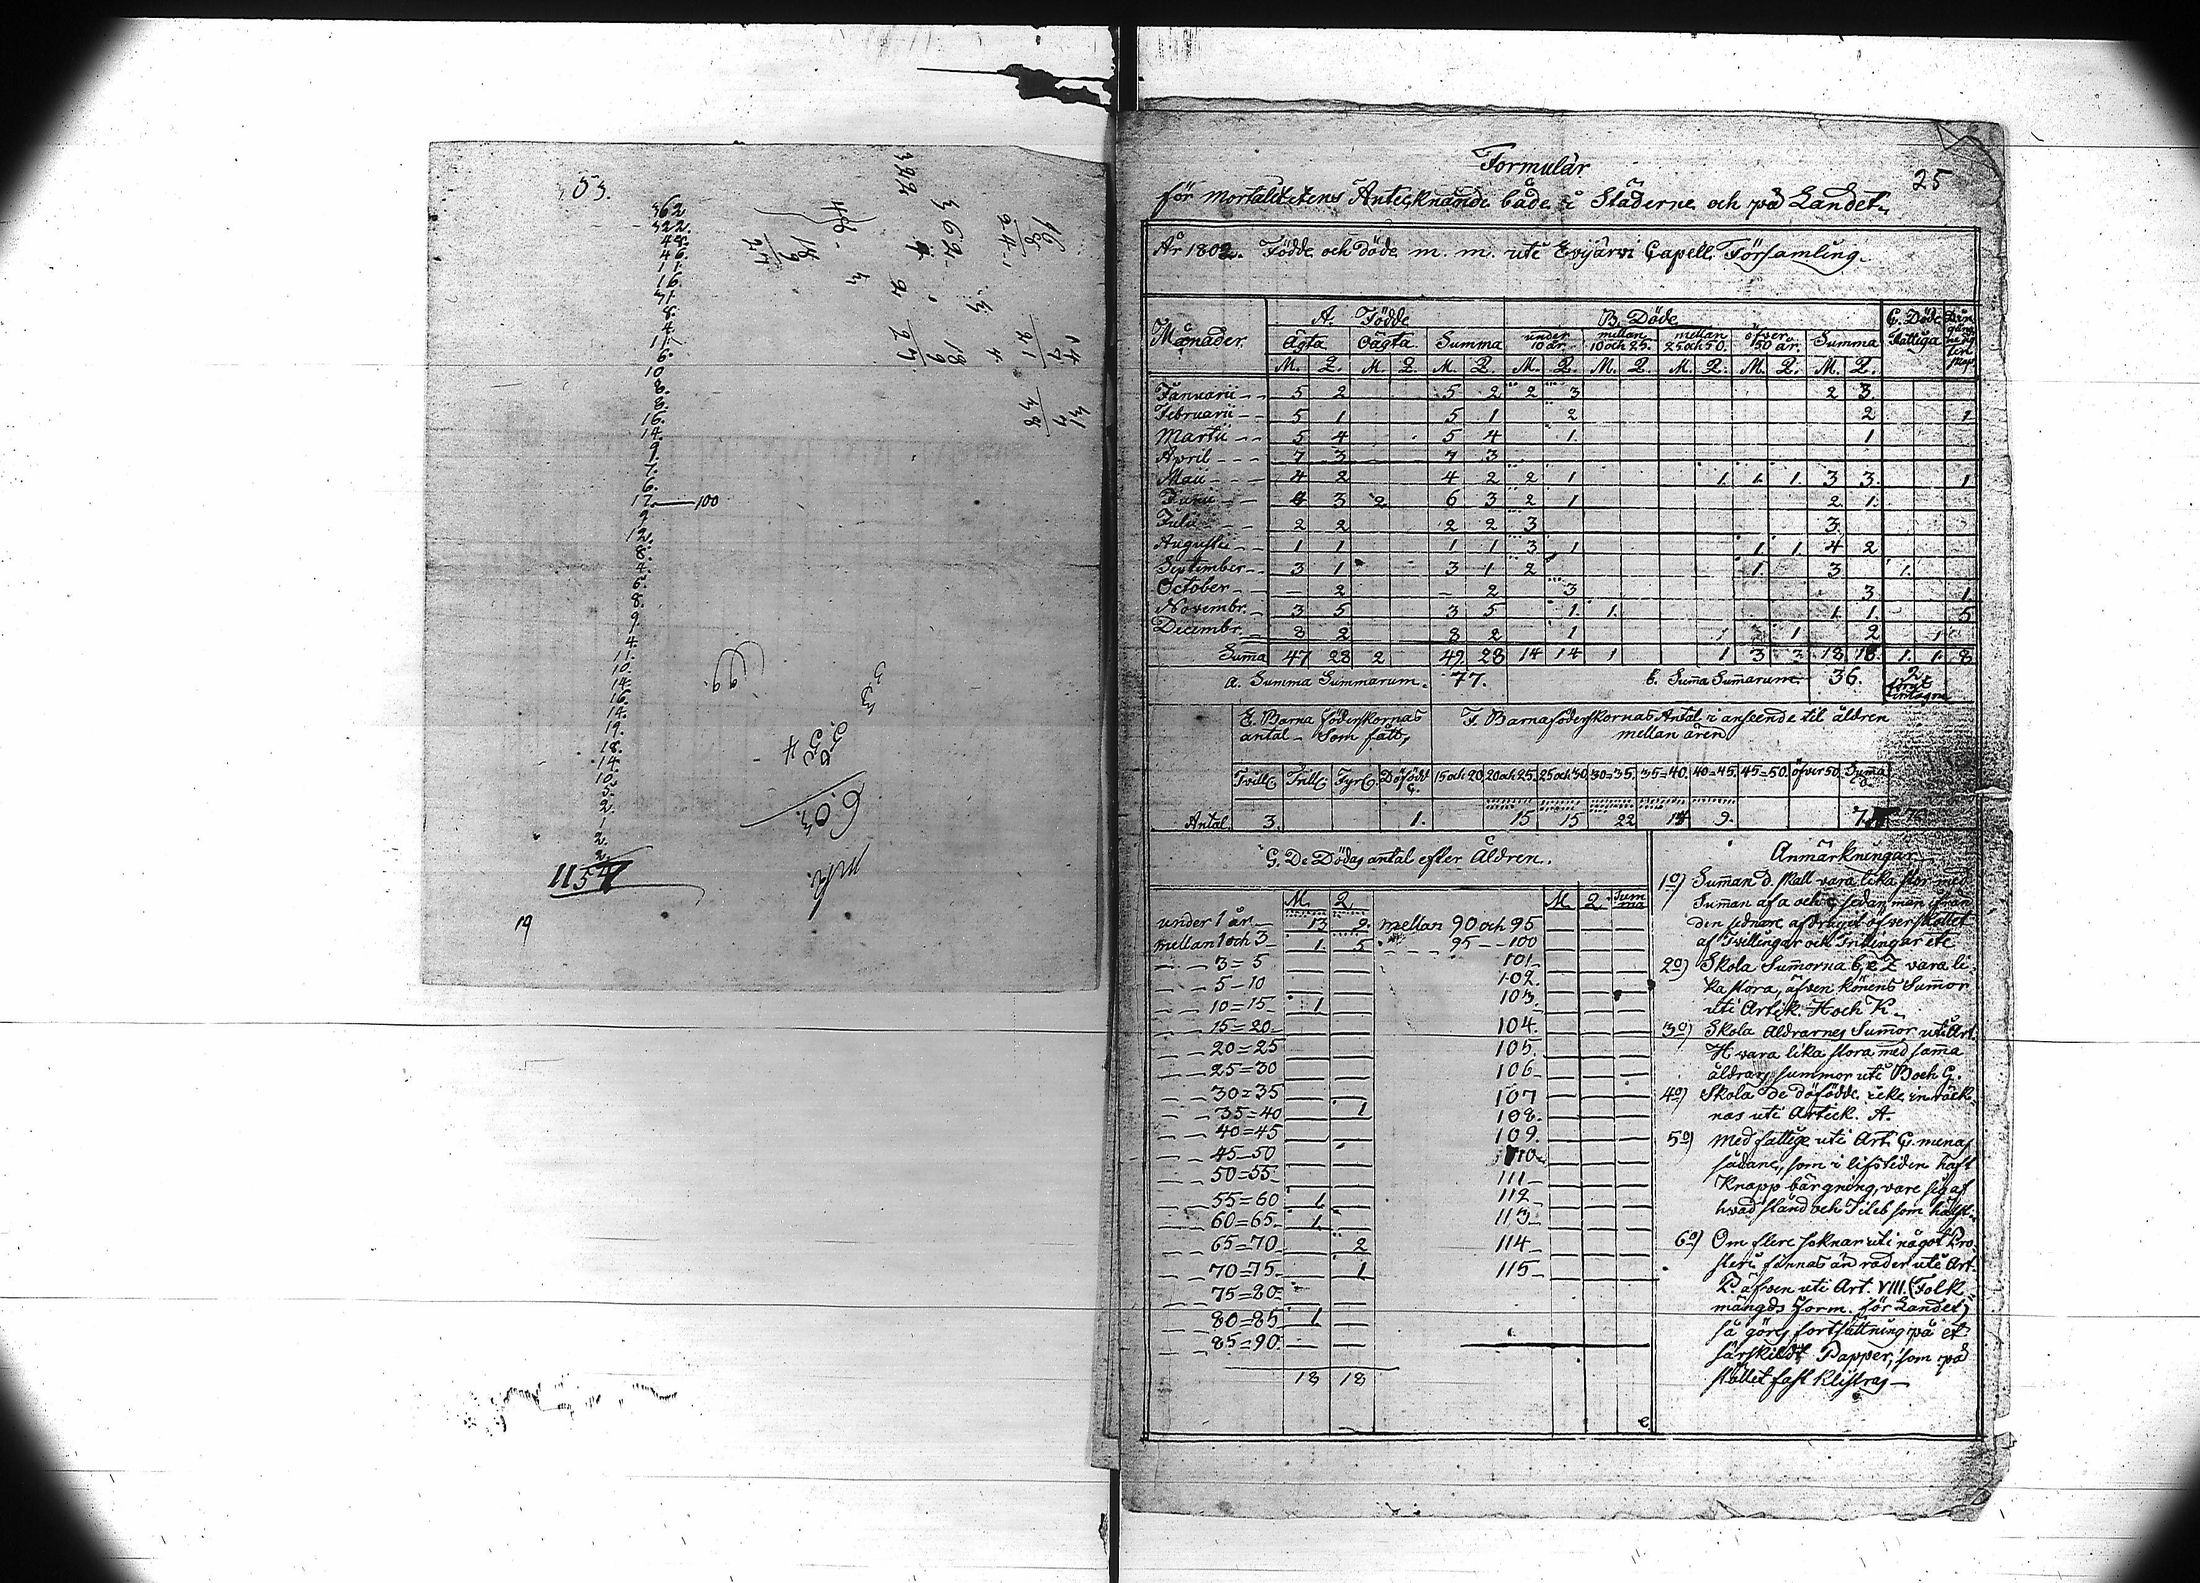 53.
362
322.
48.
46.
11.
16.
31.
8.
4.
11.
6.
10
8.
8.
16.
14.
9.
7.
6.
17. — 100
9.
12.
8.
4.
6.
8.
9.
4.
11.
10.
14.
16.
14.
19.
18.
14.
10.
5.
2.
1
2.
2.
1154
19
322
362
48
18
9
27
99.
603
25
Formulär
för Mortalitetens Antecknande både i Städerne och på Landet.
År 1802. Födde och döde m. m. uti Evijärvi Capell Församling.
Månader. A. Födde B. Döde C. Döde fattiga
Ägta Oägta Summa under 10 år. mellan 10 och 25. mellan 25 och 50. öfver 50 år. Summa
M. Q. M Q. M. Q M. Q. M. Q. M. Q. M. Q. M. Q.
Januarii 5 2 5 2 2 3 2 3.
Februarii 5 1 5 1 2 2 1
Martii 5 4 5 4 1. 1
April 7 3 7 3
Maii 4 2 4 2 2 1 1. 1. 1 3 3. 1
Junii 4 3 2 6 3 2 1 2 1.
Julii 2 2 2 2 3 3.
Augusti 1 1 1 1 3 1 1 1 4 2
September 3 1 3 1 2 1. 3 1.
October – 2 – 2 3 3. 1.
Novembr. 3 5 3 5 1 1. 1. 1. 5
Decembr. 8 2 8 2 1 1 1 2 1
Suma 47 28 2 49 28 14 14 1 1 3 3 18 18. 1. 1. 8
a. Summa Summarum. 77. b. Suma Sumarum. 36. 2
E. Barnaföderskornas antal – Som fått, F. Barnaföderskornas Antal i anseende til åldren
mellan åren
Tvill. Trill. Fyr. Döfödt 15 och 20 20 och 25. 25 och 30 30=35. 35=40. 40=45. 45=50. öfver 50 Suma d.
Antal 3. 1. 15 15 22 14 9.
G. De Dödas antal efter Åldren.
M. Q. M. Q. Summa
under 1 år. 13 9. mellan 90 och 95
mellan 1 och 3 1. 5 95 – 100
3=5 101
5–10 102.
10=15 1 103.
15=20 104.
20=25 105.
25=30 106
30=35 107
35=40 1 108.
40=45 109.
45–50 110
50=55 111
55=60 1 112
60=65 1. 113
65=70 2 114
70=75. 1 115
75=80
80=85 1
85=90.
18 18
e
Anmärkningar
1o) Suman d. skall vara lika stor med
Suman af a och c, sedan man ifrån
den sednare afdragit öfverskottet
af Tvillingar och Trillingar etc
2o) Skola Sumorna b, e Z vara li-
ka stora, äfven könens Sumor
uti Artik. H och K.
3o) Skola Åldrarnes Sumor uti Art.
H vara lika stora med sama
åldrars summor uti B och G.
4o) Skola De döfödde icke inräk-
nas uti Artick. A.
5o) Med fattige uti Art. C. menas
sådane, som i lifstiden haft
Knapp bärgning, vare sig af
hvad stånd och Titel som hälst.
6o) Om flere soknar uti något Pro-
steri finnas än rader uti Art.
P. äfven uti Art. VIII. (Folk-
mängds Form. för Landet)
så göres fortsättning på et
särskildt Papper, som på
stället fast klistras –